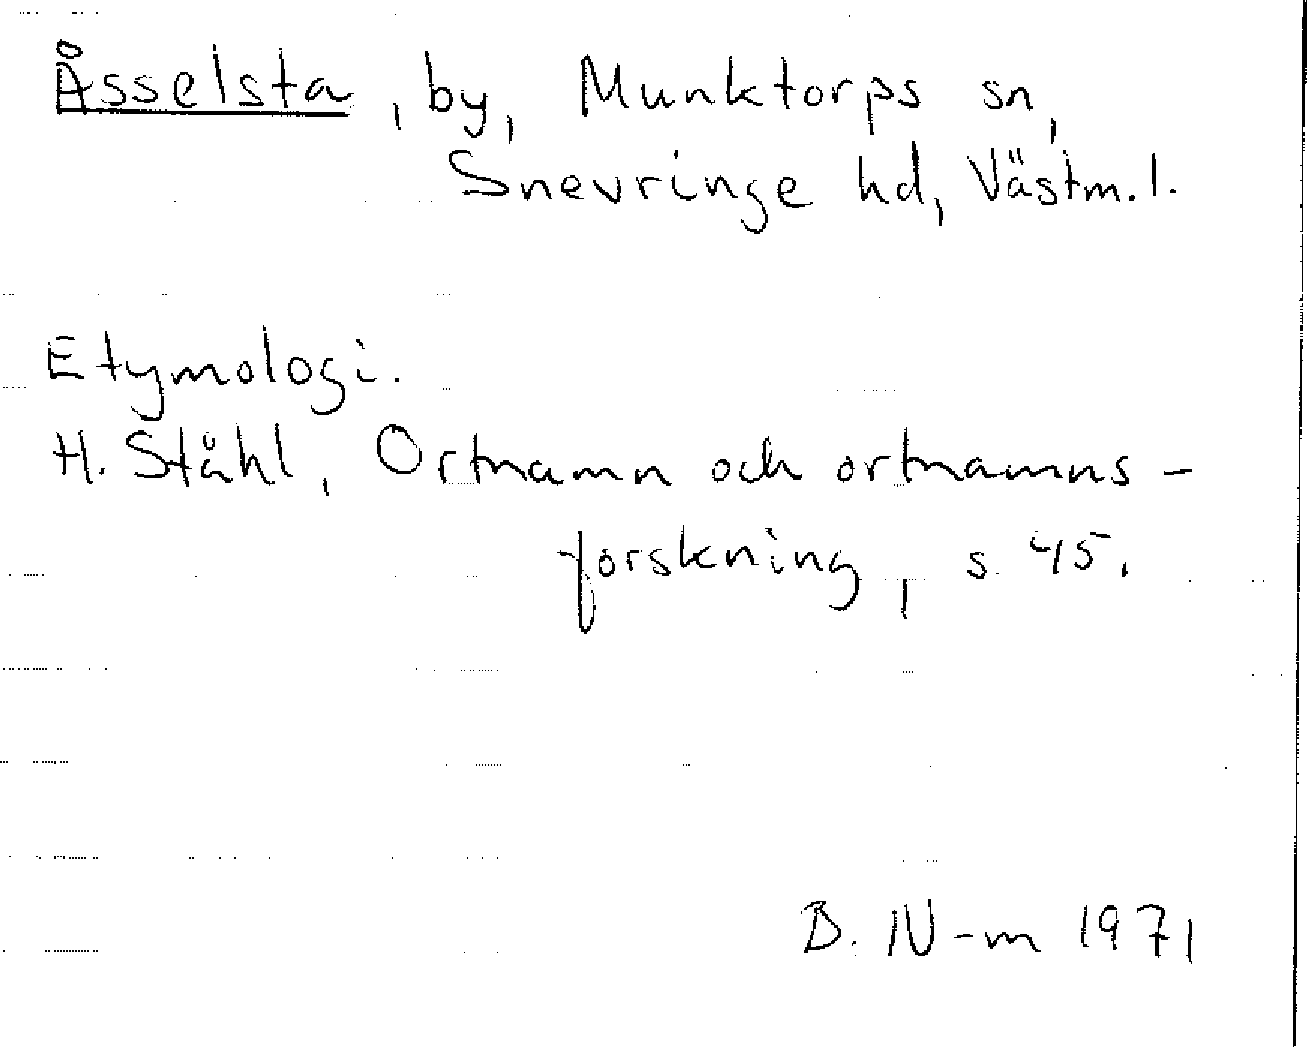 Åsselsta, by, Munktorps sn,
Snevringe hd, Västm.l.
Etymologi.
H. Ståhl, Ortnamn och ortnamns-
forskning, s. 45.
B. N-m 1971